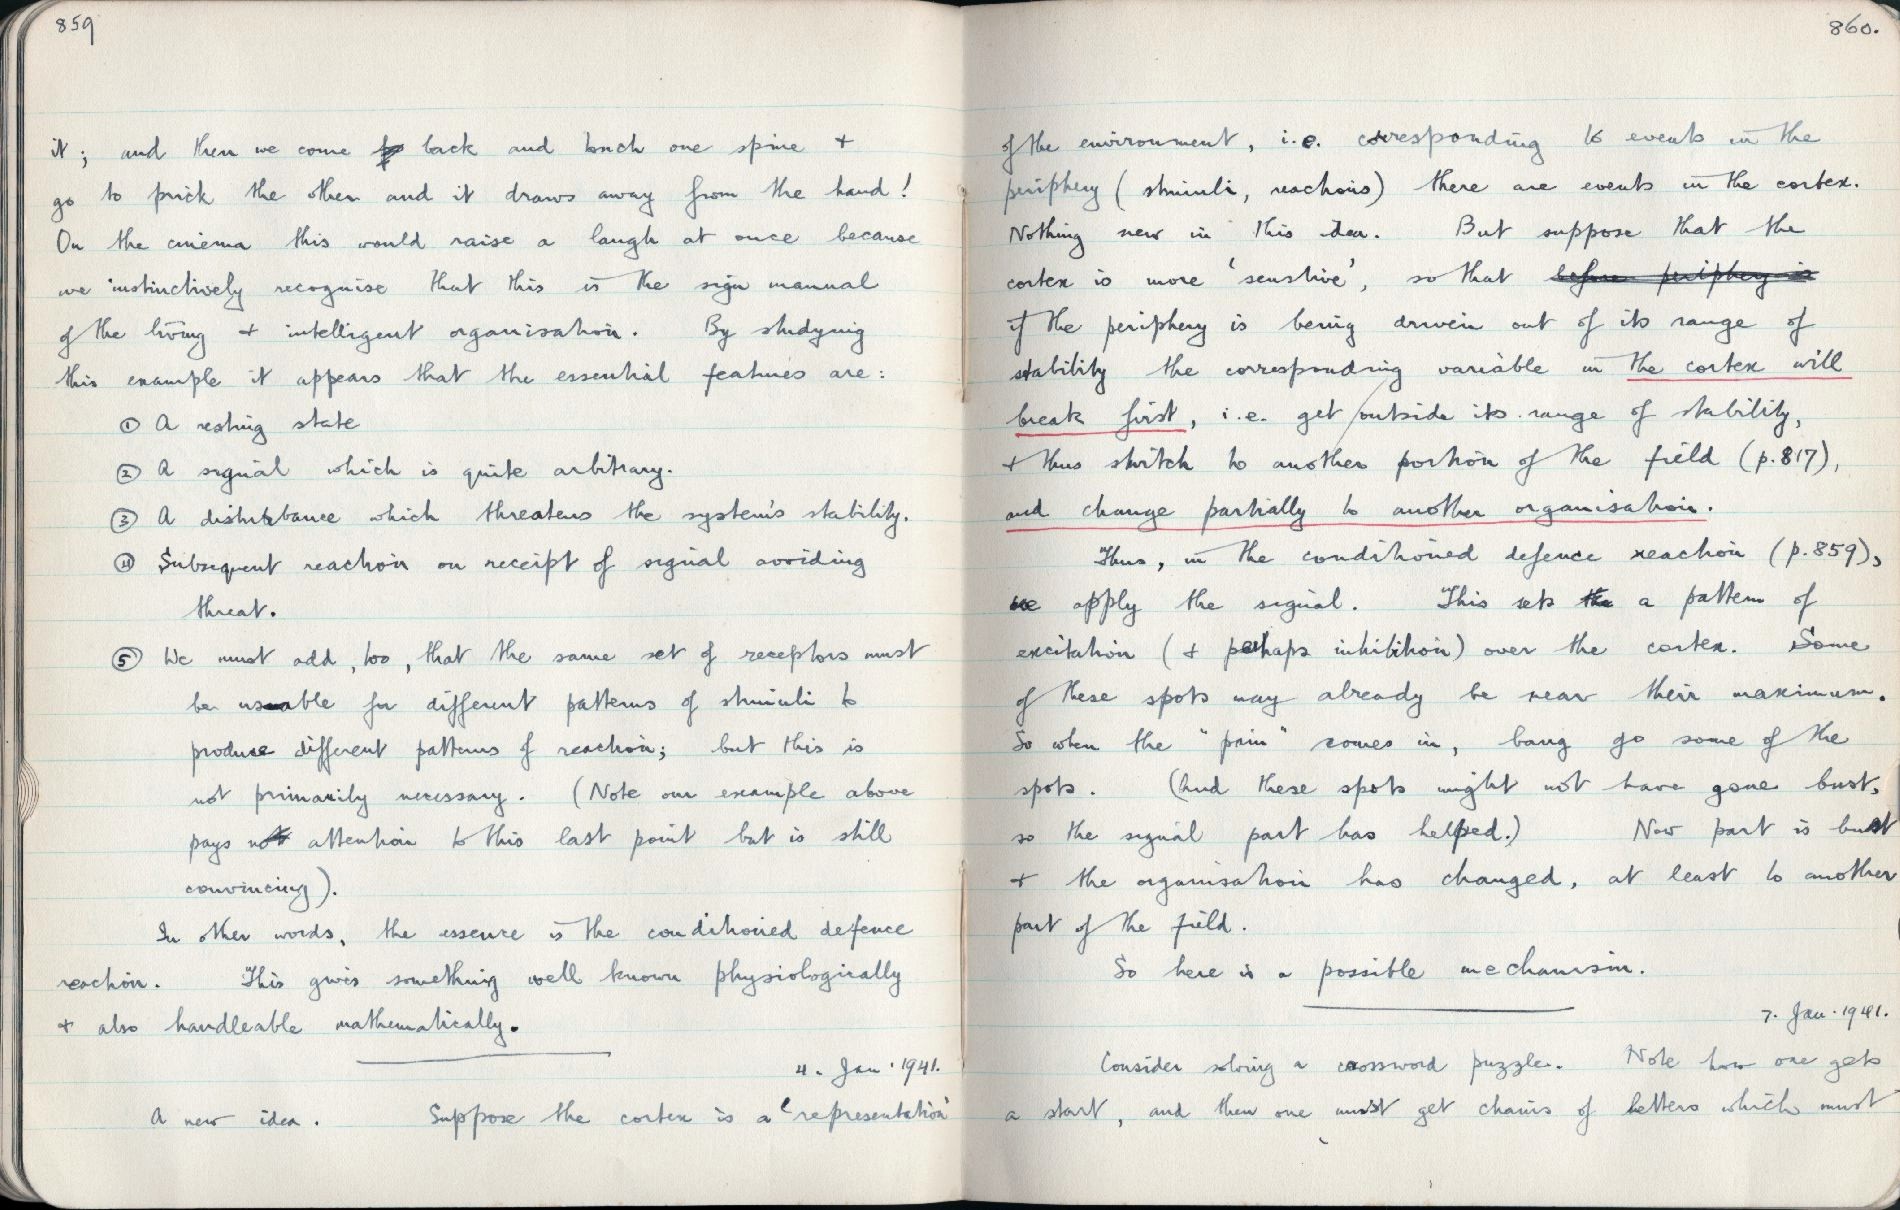 859
it; and then we come back and touch one spine +
go to prick the other and it draws away from the hand!
On the cinema this would raise a laugh at once because
we instinctively recognise that this is the sign manual
of the living + intelligent organisation. By studying
this example it appears that the essential features are:
① A resting state
② A signal which is quite arbitrary.
③ A disturbance which threatens the system's stability.
④ Subsequent reaction on receipt of signal avoiding
threat.
⑤ We must add, too, that the same set of receptors must
be usable for different patterns of stimuli to
produce different patterns of reaction; but this is
not primarily necessary. (Note our example above
pays no attention to this last point but is still
convincing).
In other words, the essence is the conditioned defence
reaction. This gives something well known physiologically
+ also handleable mathematically.
4. Jan. 1941.
A new idea. Suppose the cortex is a 'representation'
860.
of the environment, i.e. corresponding to events in the
periphery (stimuli, reactions) there are events in the cortex.
Nothing new in this idea. But suppose that the
cortex is more 'sensitive', so that before periphery is
if the periphery is being driven out of its range of
stability the corresponding variable in the cortex will
break first, i.e. get outside its range of stability,
+ thus switch to another portion of the field (p.817),
and change partially to another organisation.
Thus, in the conditioned defence reaction (p.859),
we apply the signal. This sets the a pattern of
excitation (+ perhaps inhibition) over the cortex. Some
of these spots may already be near their maximum.
So when the "pain" comes in, bang go some of the
spots. (And these spots might not have gone bust,
so the signal part has helped.) Now part is bust
+ the organisation has changed, at least to another
part of the field.
So here is a possible mechanism.
7. Jan. 1941.
Consider solving a crossword puzzle. Note how one gets
a start, and then one must get chains of letters which must